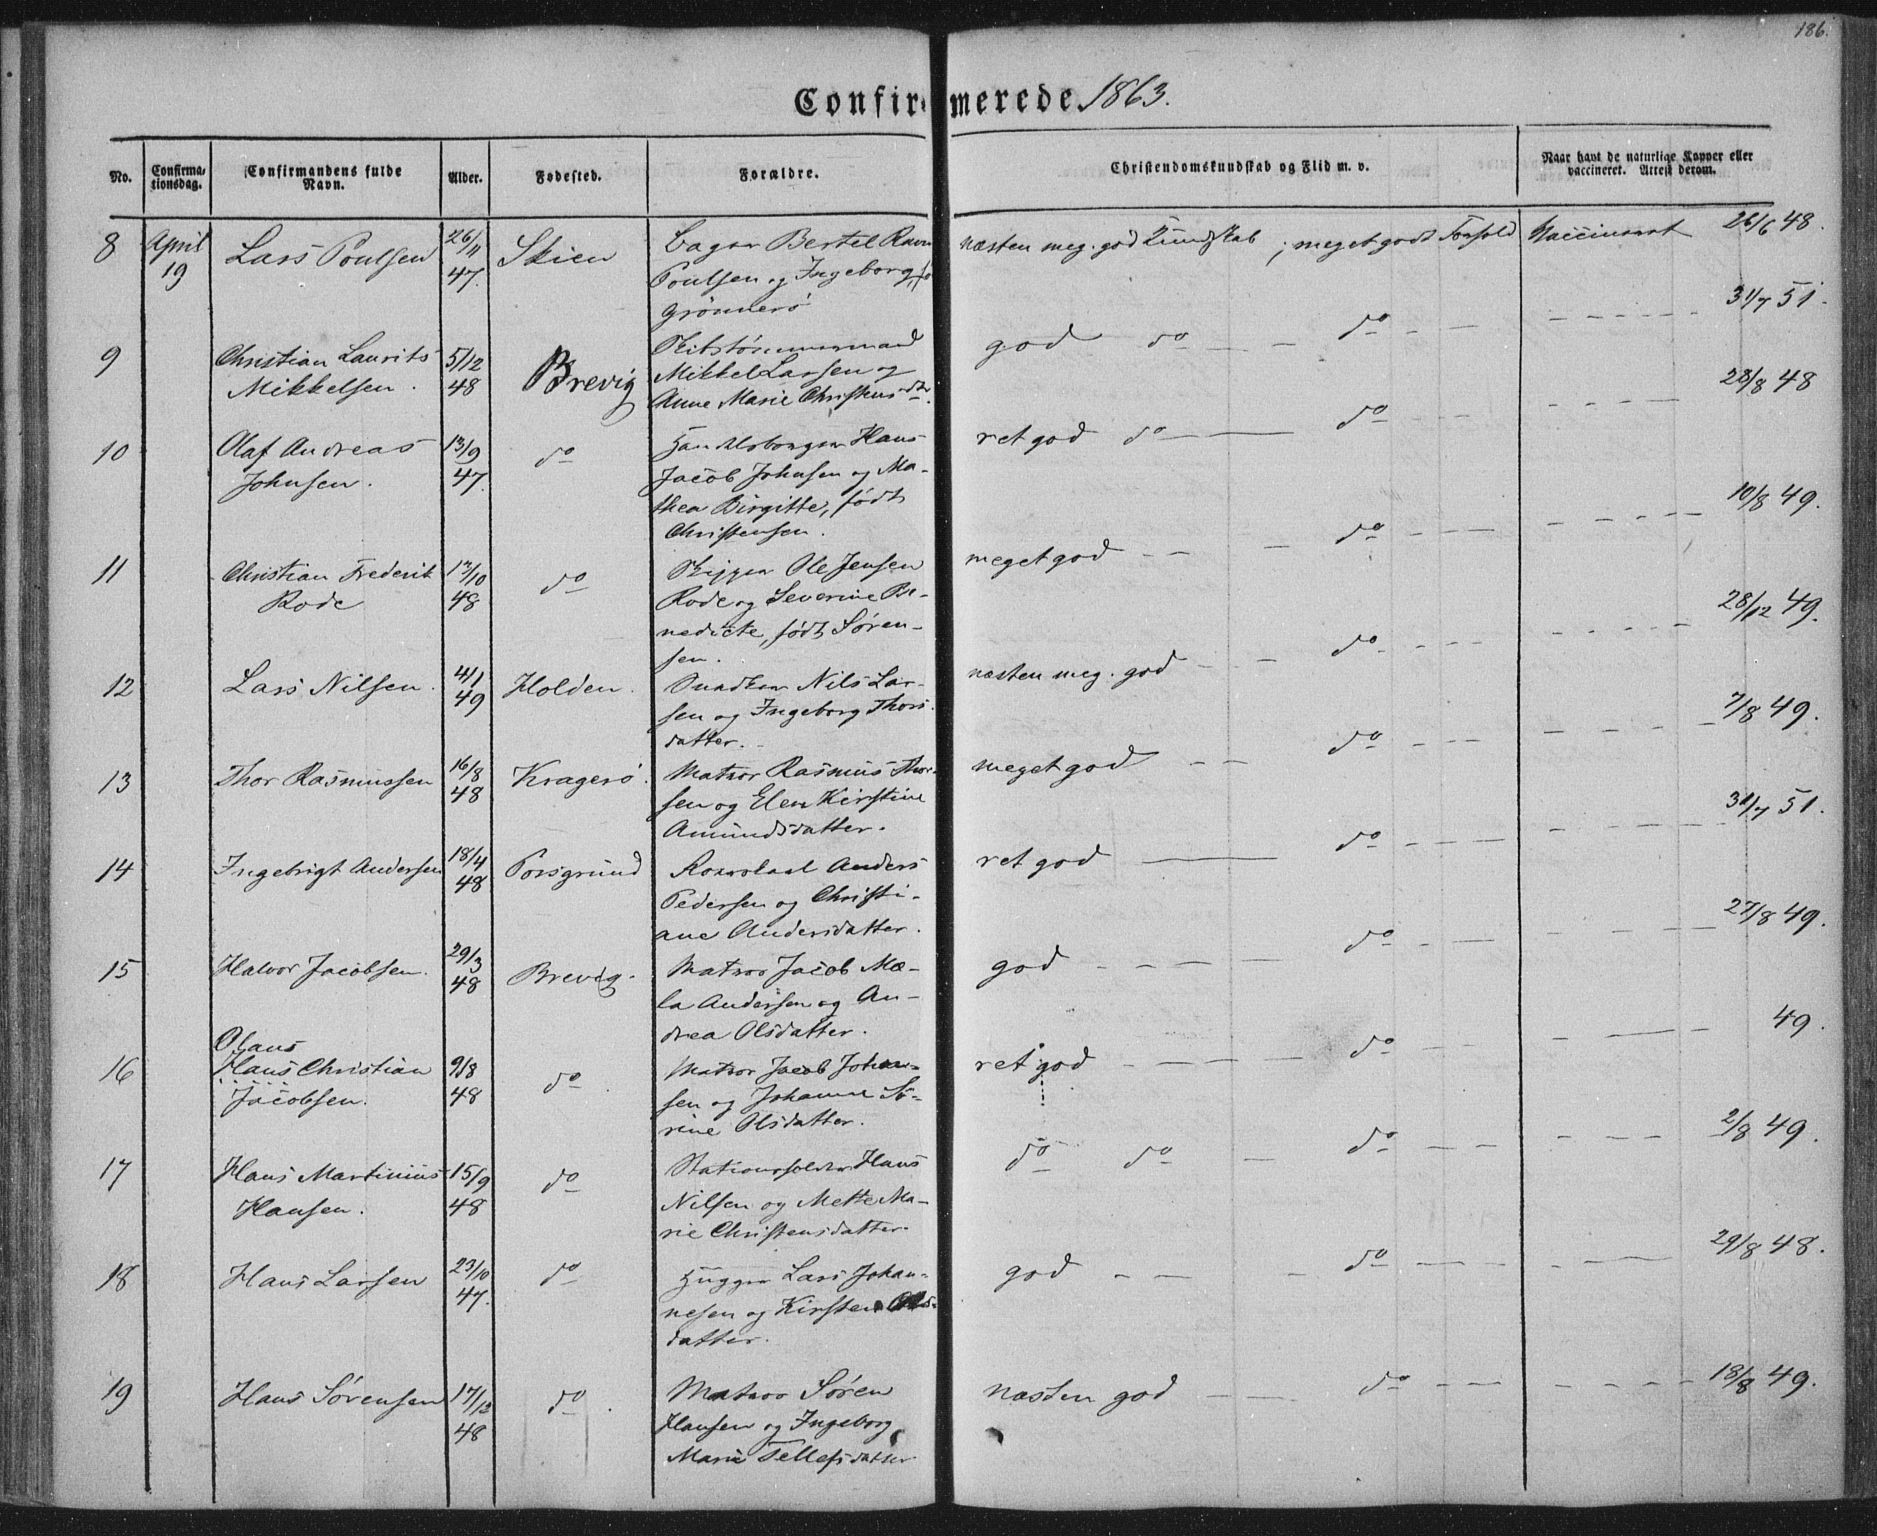 186.
Confirmerede 1863.
No. Confirmationsdag. Confirmandens fulde Navn. Alder. Fødested. Forældre. Christendomskundskab og Flid m. v. Naar havt de naturlige Kopper eller vaccineret. Attest derom.
8 April 19 Lars Poulsen 26/11 47. Skien Bager Bertel Ravn
Poulsen og Ingeborg, f.
Grønnerö
næsten meg. god Kundskab ; meget godt Forhold Vaccineret 26/6 48.
9 Christian Laurits
Mikkelsen. 5/12 48 Brevig Skibstömmermand
Mikkel Larsen og
Anne Marie Christensdtr.
god do — — do - — — - — — — — 31/7 51.
10 Olaf Andreas
Johnsen. 13/9 47. do Handelsborger Hans
Jacob Johnsen og Ma-
thea Birgitte, födt
Christensen.
ret god do — — do 28/8 48
11 Christian Frederik
Rode 12/10 48 do Skipper Ole Jensen
Rode og Severine Be-
nedicte, födt Sören-
sen.
meget god - - — do 10/8 49.
12 Lars Nilsen. 4/1 49 Holden. Snedker Nils Lar-
sen og Ingeborg Thors-
datter.
næsten meg. god - - do 28/12 49.
13 Thor Rasmussen 16/8 48 Kragerö. Matros Rasmus Thor-
sen og Elen Kirstine
Amundsdatter.
meget god - - do 7/8 49.
14 Ingebrigt Andersen 18/4 48 Porsgrund Anders
Pedersen og Christi-
ane Andersdatter.
ret god — do 31/7 51.
15 Halvor Jacobsen. 29/3 48 Brevig. Matros Jacob Mæ-
la Andersen og An-
drea Olsdatter.
god - - - do 27/8 49.
16 Olaus
Hans Christian
Jacobsen. 9/8 48 do. Matros Jacob Johan-
sen og Johanne Sö-
rine Olsdatter.
ret god - - - do 49.
17 Hans Martinius
Hansen. 15/9 48 do Stationsholder Hans
Nilsen og Mette Ma-
rie Christensdatter.
do do — do 2/8 49.
18 Hans Larsen 23/10 47. do Hugger Lars Johan-
nesen og Kirsten
datter.
god - - - do 29/8 48.
19 Hans Sörensen 17/12 48 do. Matros Sören
Hansen og Ingeborg
Marie Tellefsdatter
næsten god - — do 18/8 49.